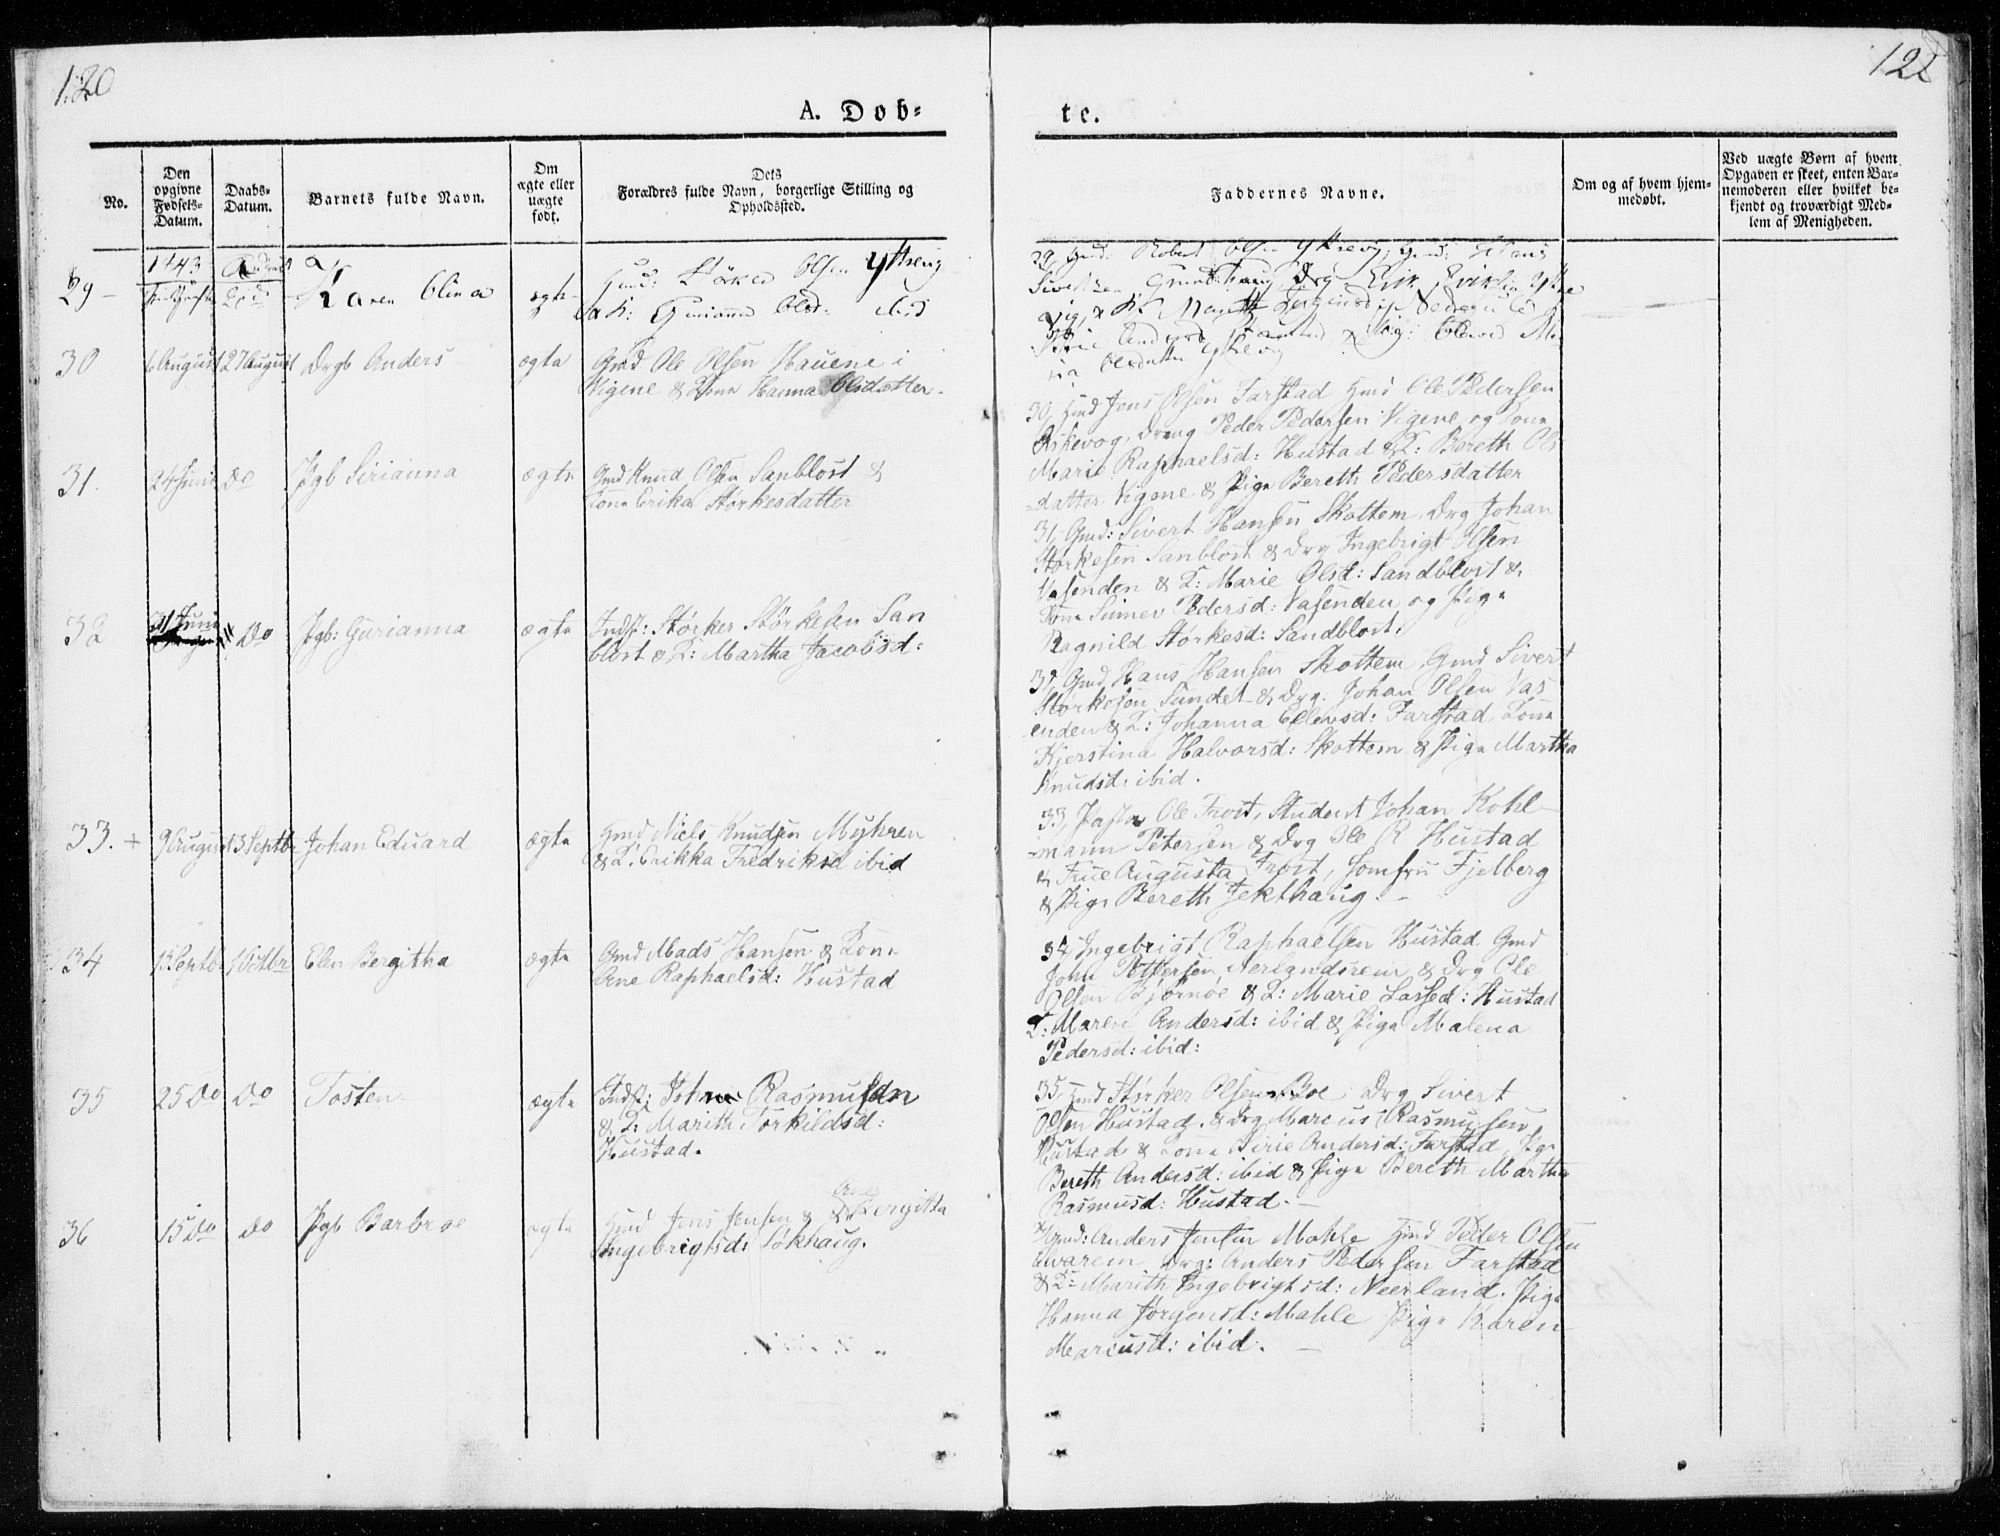 120
122
A. Døb=
te.
No.
Den
opgivne
Fødsels-
Datum.
Daabs-
Datum.
Barnets fulde Navn.
Om
ægte eller
uægte
født.
Dets
Forældres fulde Navn, borgerlige Stilling og
Opholdssted.
Faddernes Navne.
Om og af hvem hjem-
medøbt.
Ved uægte Børn af hvem
Opgaven er skeet, enten Bar-
nemoderen eller hvilket be-
kjendt og troværdigt Med-
lem af Menigheden.
29
1843
Karen Olina
ægte
Gmd: Størker Olsen Yttrevig
& K: Gurianna Olsd: ibid
29, Gmd. Robert Olsen Yttrevig, Gmd: Hans
Sivertsen Drg: Erik
Vig,
Yttrevig
30
6 August
27 August
Drgb Anders
ægte
Gmd Ole Olsen Hauene i
Vigene & Kone Hanna Olsdatter
30, Gmd Jens Olsen Farstad Gmd Ole Pedersen
Askevog, Dreng Peder Pedersen Vigene og Kone
Marie Raphaelsd: Hustad & K: Bereth Ols
=datter Vigene & Pige Bereth Pedersdatter
31.
24 Juni
do
Pgb Sirianna
ægte
Gmd Knud Olsen Sanblost &
Kone Erika Størkesdatter
31, Gmd: Sivert Hansen Skottem, Drg Johan
Størkesen Sanblost & Drg Ingebrigt Olsen
Vasenden & K: Marie Olsd: Sandblost &
Kone Pedersd: Vasenden og Pige
Ragnild Størkesd: Sandblost.
32
21 Juni
do
Pgb: Gurianna
ægte
Indst: Størker Størkesen San
blost & K: Martha Jacobsd:
32, Gmd Hans Hansen Skottem, Gmd Sivert
Størkesen Sundet & Drg: Johan Olsen Vas
enden & K: Johanna Ellevsd: Farstad Kone
Kjerstina Halvorsd: Skottem & Pige Martha
Knudsd: ibid.
33. +
9 August
3 Septbr
Johan Eduard
ægte
Gmd Niels Knudsen Myhren
& K: Erikka Fredriksd ibid
33, Pastor Ole Frost, Student Johan Kohl
=mann Petersen & Drg Ole R Hustad
& Frue Augusta Frost, Jomfru Fjelberg
& Pige Bereth Jekthaug. -
34
13 Septbr
1 Octbr
Elen Bergitha
ægte
Gmd Mads Hansen & Kone
Ane Raphaelsd: Hustad
34, Ingebrigt Raphaelsen Hustad Gmd
John Pettersen Nerlandsreim & Drg Ole
Olsen Bjørnøe & K: Marie Lassed: Hustad
K: Maren Andersd: ibid & Pige Malena
Pedersd: ibid:
35
25 do
do
Tosten
ægte
Indst: Rasmussen
& K: Marith Torkildsd:
Hustad.
35, Gmd Størker Olsen Boe Drg Sivert
Olsen Hustad. & Drg Marcus Rasmusen
Hustad & Kone Sirie Andersd: Farstad, Pige
Bereth Andersd: ibid & Pige Bereth Martha
Rasmusd: Hustad -
36
15 do
do
Pgb Barbroe
ægte
Gmd Jens Jensen & Ane Bergitta
Ingebrigtsd: Løkhaug.
Gmd: Anders Jensen Mahle Gmd Peder Olsen
Drg: Anders Pedersen Farstad
& K: Marith Ingebrigtsd: Neerland. Pige
Hanna Jørgensd: Mahle Pige Karen
Marcusd: ibid. -